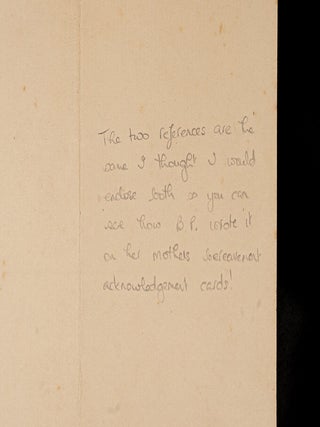 The two references are the
same I thought I would
enclose both so you can
see how B.P. wrote it
on her mothers bereavement
acknowledgement cards!